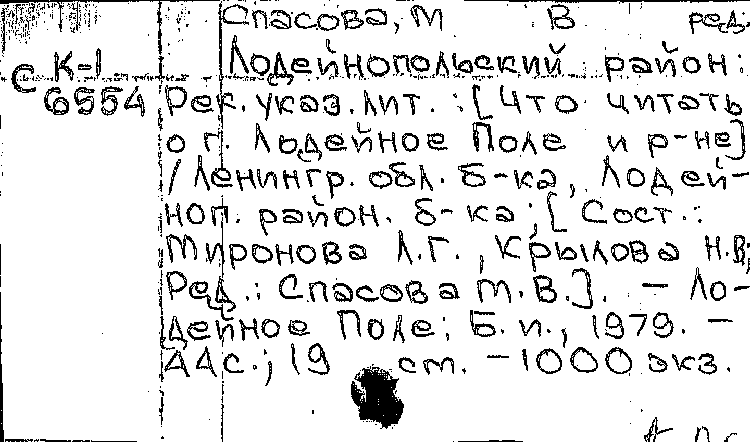 Спасова, М В. ред.
Лодейнопольский район:
С К-1
6554 Рек. указ. лит. : [Что читать
о г. Лодейное Поле и р-не]
/ Ленингр. обл. б-ка, Лодей-
ноп. район. б-ка; [Сост.:
Миронова Л.Г., Крылова Н.В;
Ред.: Спасова М.В.]. - Ло-
дейное Поле: Б.и., 1979. -
44с.; 19 см. - 1000 экз.